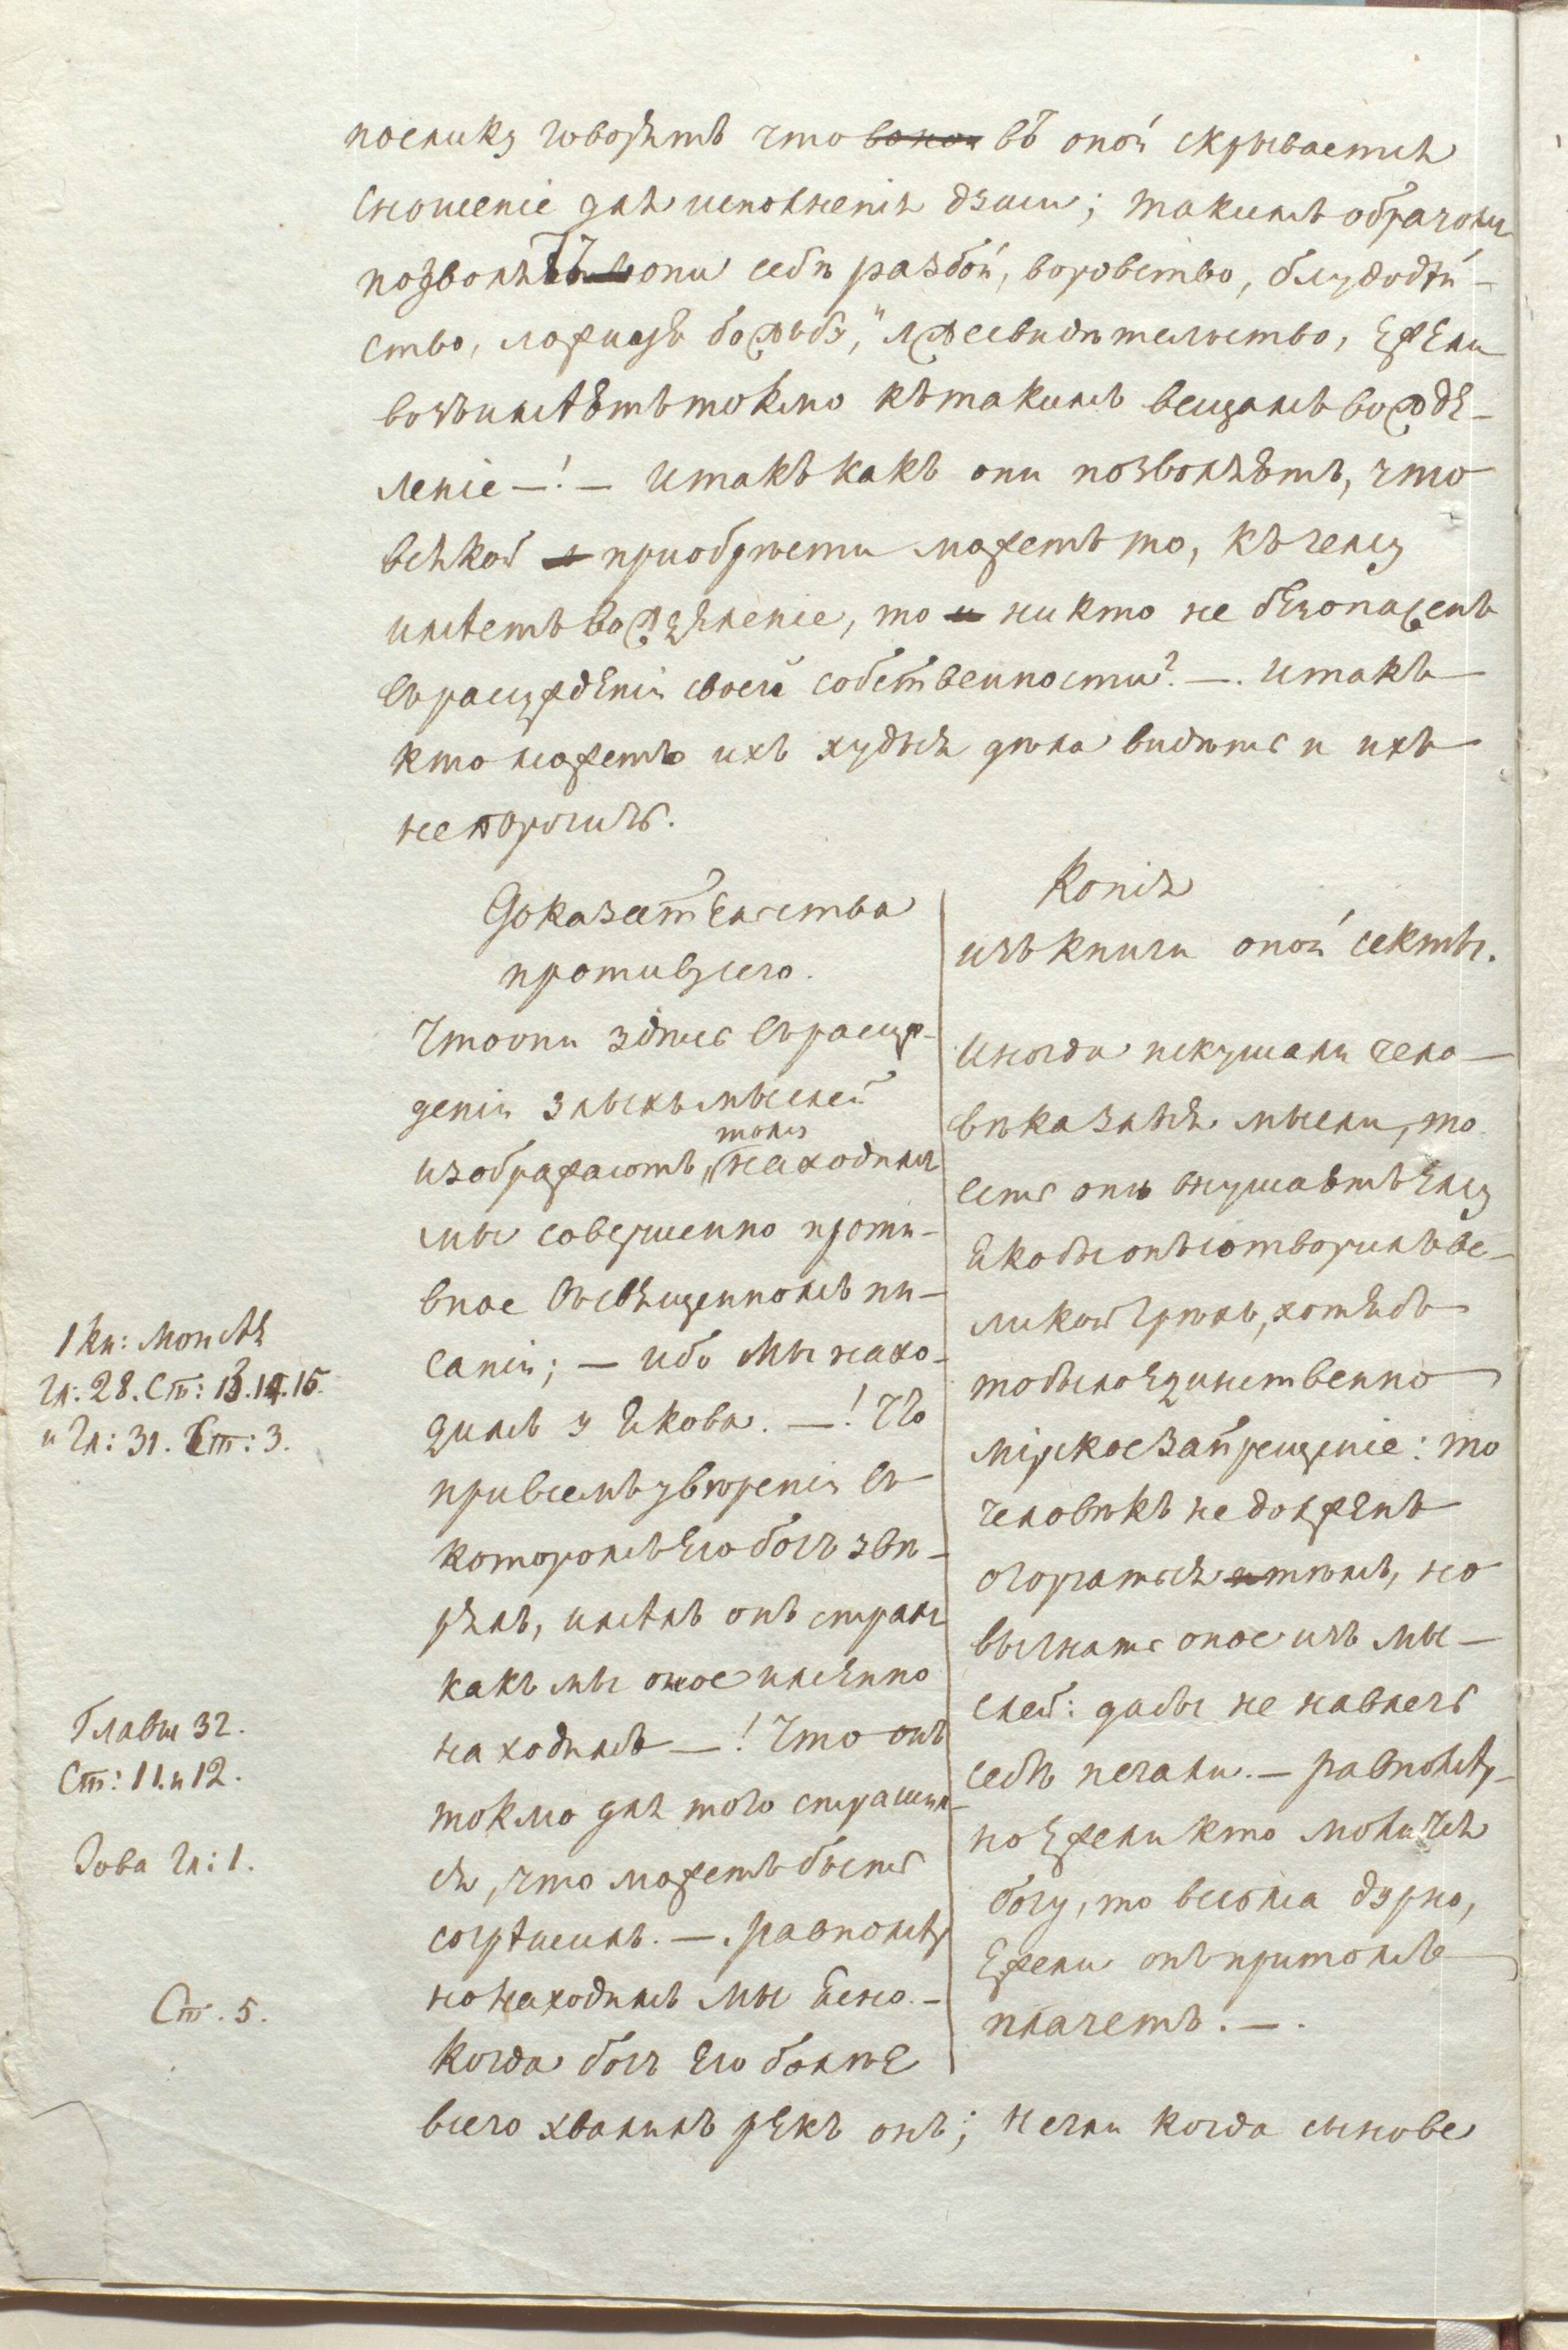 поелику говорятъ что воной въ оной скрывается
сношеніе для исполненія души; такимъ образомъ
позволяютъ они себѣ разбой, воровство, блудодѣй-
ство, ложную божьбу, и лжесвидѣтельство, ежели
возъимѣютъ токмо къ такимъ вещамъ вожде-
леніе —!— итакъ какъ они позволяютъ, что
всякой приобрѣсти можетъ то, къ чему
имѣетъ вожделеніе, то и никто не безопасенъ
въ разсужденіи своей собственности? —. Итакъ
кто можетъ ихъ худыя дѣла видѣть и ихъ
не порочить.
Доказательства
противу сего.
Что они здѣсь въ разсуж-
деніи злыхъ мыслей
изображаютъ, тому находимъ
мы совершенно проти-
вное въ священномъ пи-
саніи; — ибо мы нахо-
димъ у Якова. —! Что
при всемъ увѣреніи въ
которомъ его богъ увѣ-
рялъ, имѣлъ онъ страхъ
какъ мы оное именно
находимъ —! Что онъ
токмо для того страшил-
ся, что можетъ быть
согрѣшилъ. —. равномѣр-
но находимъ мы ясно. —
когда богъ его болѣе
всего хвалилъ рекъ онъ; негли когда сынове
Копія
изъ книги оной секты.
Иногда искушали чело-
вѣка злыя мысли, то
есть онѣ внушаютъ ему
якобы онъ сотворилъ ве-
ликой грѣхъ, хотя бъ
то было единственно
мірское запрещеніе: то
человѣкъ не долженъ
огорчаться тѣмъ, но
выгнать оное изъ мы-
слей: дабы не навлечь
себѣ печали. — равномѣр-
но ежели кто молится
богу, то весьма дурно,
ежели онъ притомъ
плачетъ. —.
1 кн: Моисея
гл: 28. Ст: 13.14.15.
и гл: 31. Ст: 3.
Главы 32.
Ст: 11. и 12.
Іова гл: 1.
Ст. 5.